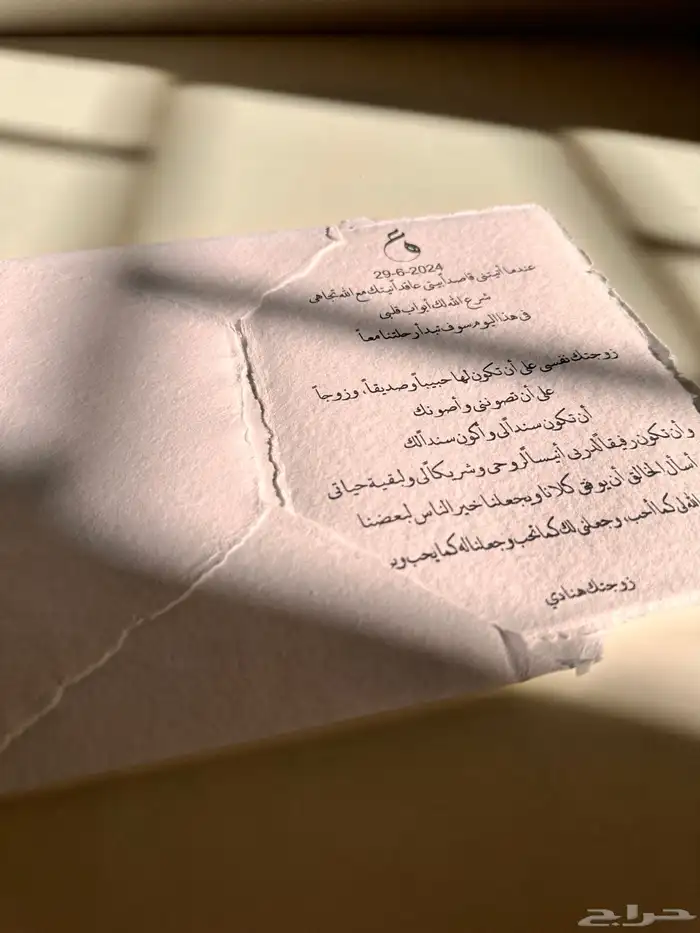 29-6-2024
عندما أتيتني قاصداً بيتي عاقداً نيتك مع الله تجاهي
شرع الله لك أبواب قلبي
في هذا اليوم سوف نبدأ رحلتنا معاً
زوجتك نفسي على أن تكون لها حبيباً وصديقاً، وزوجاً
على أن تصونني وأصونك
أن تكون سنداً لي وأكون سنداً لك
وأن تكون رفيقاً لدربي أنيساً لروحي وشريكاً لي ولبقية حياتي
أسأل الخالق أن يوفق كلانا ويجعلنا خير الناس لبعضنا
الله لي كما أحب، وجعلني لك كما تحب وجعلنا له كما يحب
زوجتك هنادي
حراج